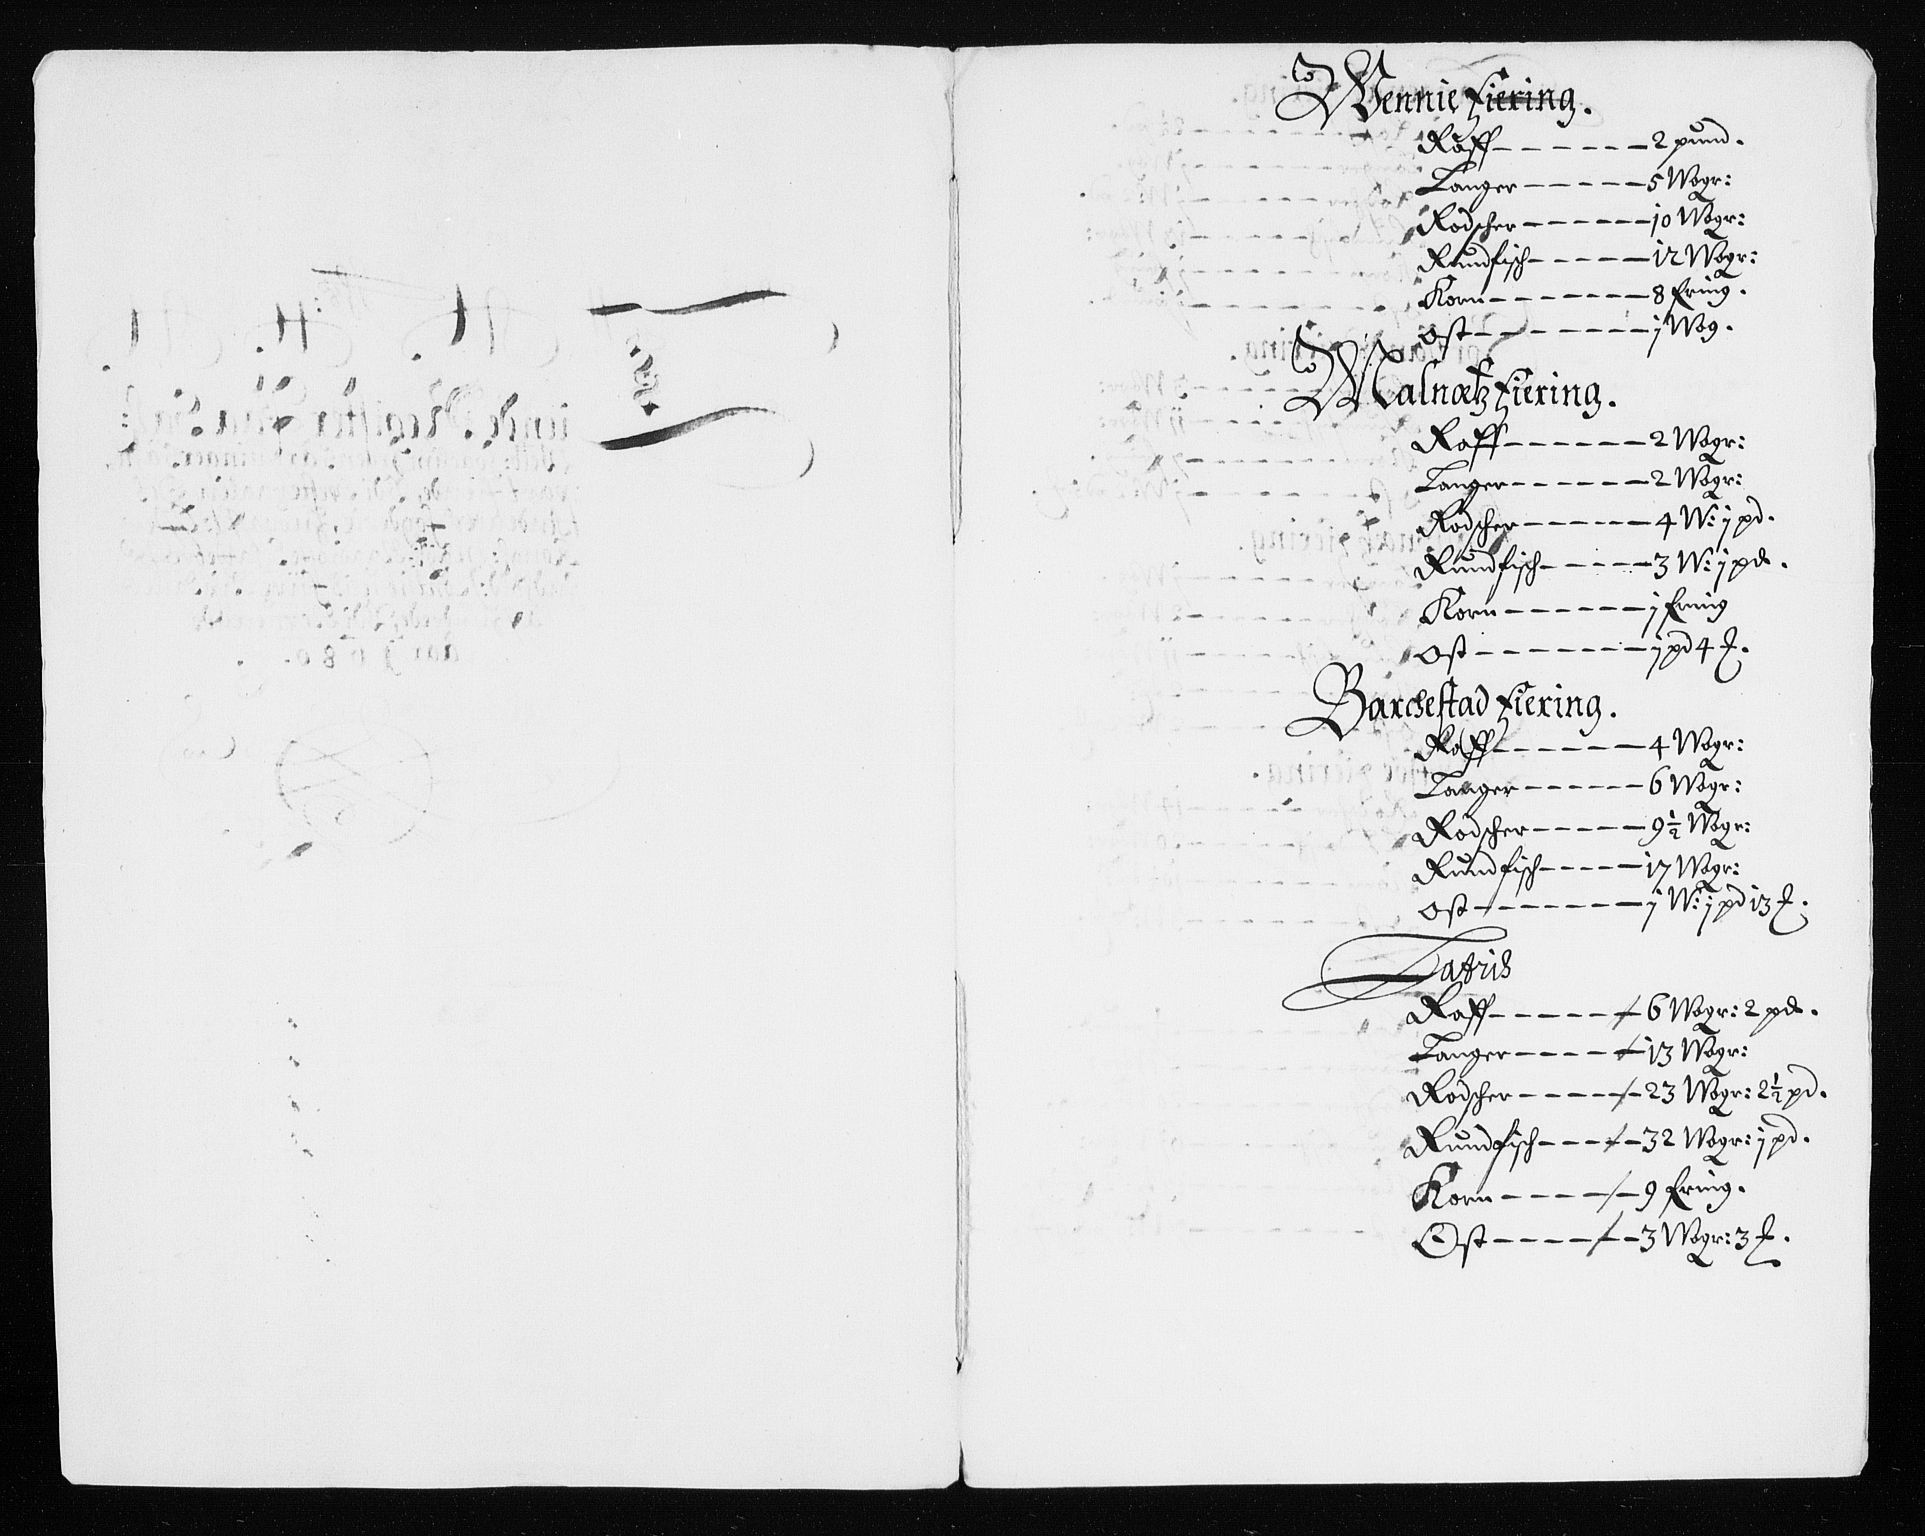 Wennie Fiering.
Raff 2 pund.
Langer 5 Wogr:
Rodscher 10 Wogr:
Rundfisch 12 Wogr:
Korn 8 Ering.
Ost 1 Wog.
Malnæs Fiering.
Raff 2 Wogr:
Langer 2 Wogr:
Rodscher 4 W: 1 pd.
Rundfisch 3 W: 1 pd.
Korn 1 Ering
Ost 1 pd 4 ℔.
Barchestad Fiering.
Raff 4 Wogr:
Langer 6 Wogr:
Rodscher 9½ Wogr:
Rundfisch 17 Wogr:
Ost 1 W: 1 pd 13 ℔.
Latris
Raff 6 Wogr: 2 pd.
Langer 13 Wogr:
Rodscher 23 Wogr: 2½ pd.
Rundfisch 32 Wogr: 1 pd.
Korn 9 Ering.
Ost 3 Wogr: 3 ℔.